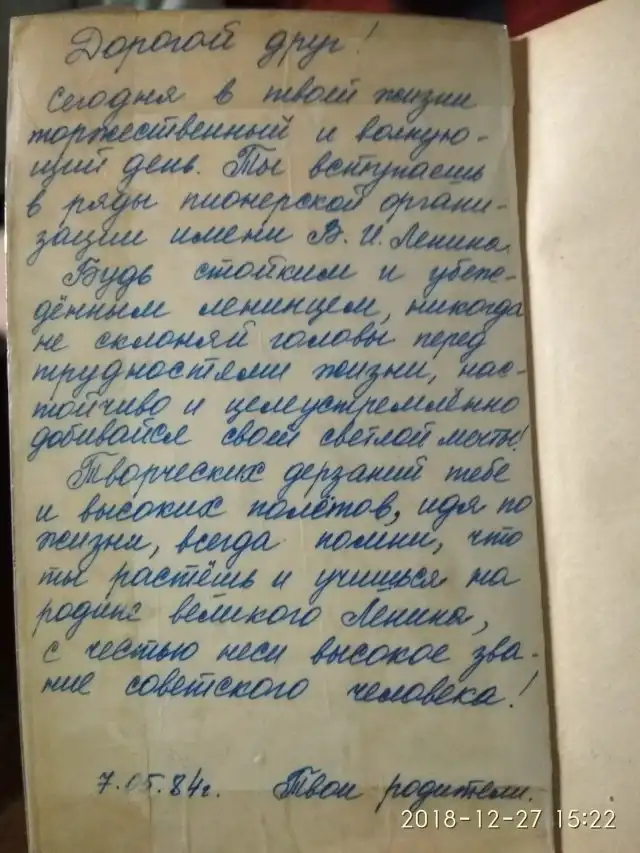 Дорогой друг!
Сегодня в твоей жизни
торжественный и волную-
щий день. Ты вступаешь
в ряды пионерской органи-
зации имени В. И. Ленина.
Будь стойким и убеж-
дённым ленинцем, никогда
не склоняй головы перед
трудностями жизни, нас-
тойчиво и целеустремлённо
добивайся своей светлой мечты!
Творческих дерзаний тебе
и высоких полётов, идя по
жизни, всегда помни, что
ты растёшь и учишься на
родине великого Ленина,
с честью неси высокое зва-
ние советского человека!
7.05.84г. Твои родители.
2018-12-27 15:22